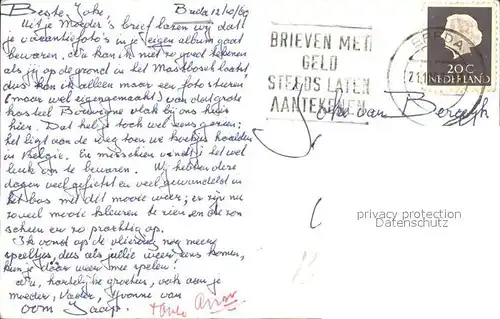 Beste Joke, Breda 12/10/59
Uit je Moeder's brief lazen wij dat
je vacantiefoto's in je eigen album gaat
bewaren. Nu kan ik niet zo goed tekenen
als jij op de grond in het Mastbosch
dus kan ik alleen maar een foto sturen
(maar wel eigengemaakt) van de grote
kasteel Bouvigne vlak bij ons huis
hier. Dat heb je toch wel eens gezien;
het ligt aan de weg toen we koekjes haalden
in België. En misschien vondt je het wel
leuk om te bewaren. Wij hebben deze
dagen veel gefietst en veel gewandeld in
het bos met dit mooie weer; er zijn nu
zoveel mooie kleuren te zien, en de zon
scheen er zo prachtig op.
Ik vond op de vliering nog meer
speeltjes, dus als jullie weer eens komen,
kun je daar weer mee spelen!
Nu, hartelijke groeten, ook aan je
moeder, Vader, Yvonne van
oom Jaap.
BRIEVEN MET
GELD
STEEDS LATEN
AANTEKENEN
BREDA
20 C
NEDERLAND
Joke van
privacy protection
Datenschutz